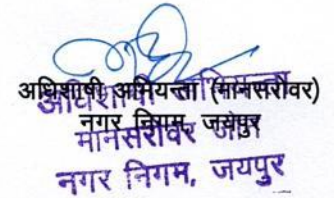 अधिशाषी अभियन्ता (मानसरोवर)
नगर निगम, जयपुर
अधिशाषी अभियन्ता
मानसरोवर जोन
नगर निगम, जयपुर